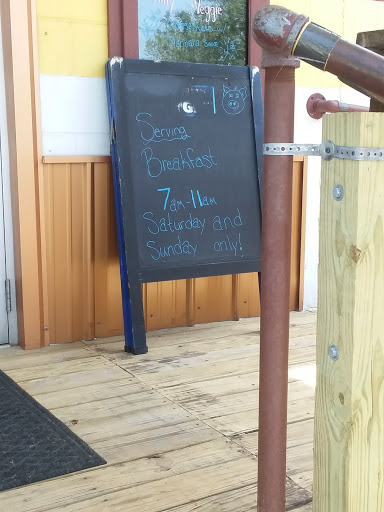 Veggie
Serving
Breakfast
7am-11am
Saturday and
Sunday only!